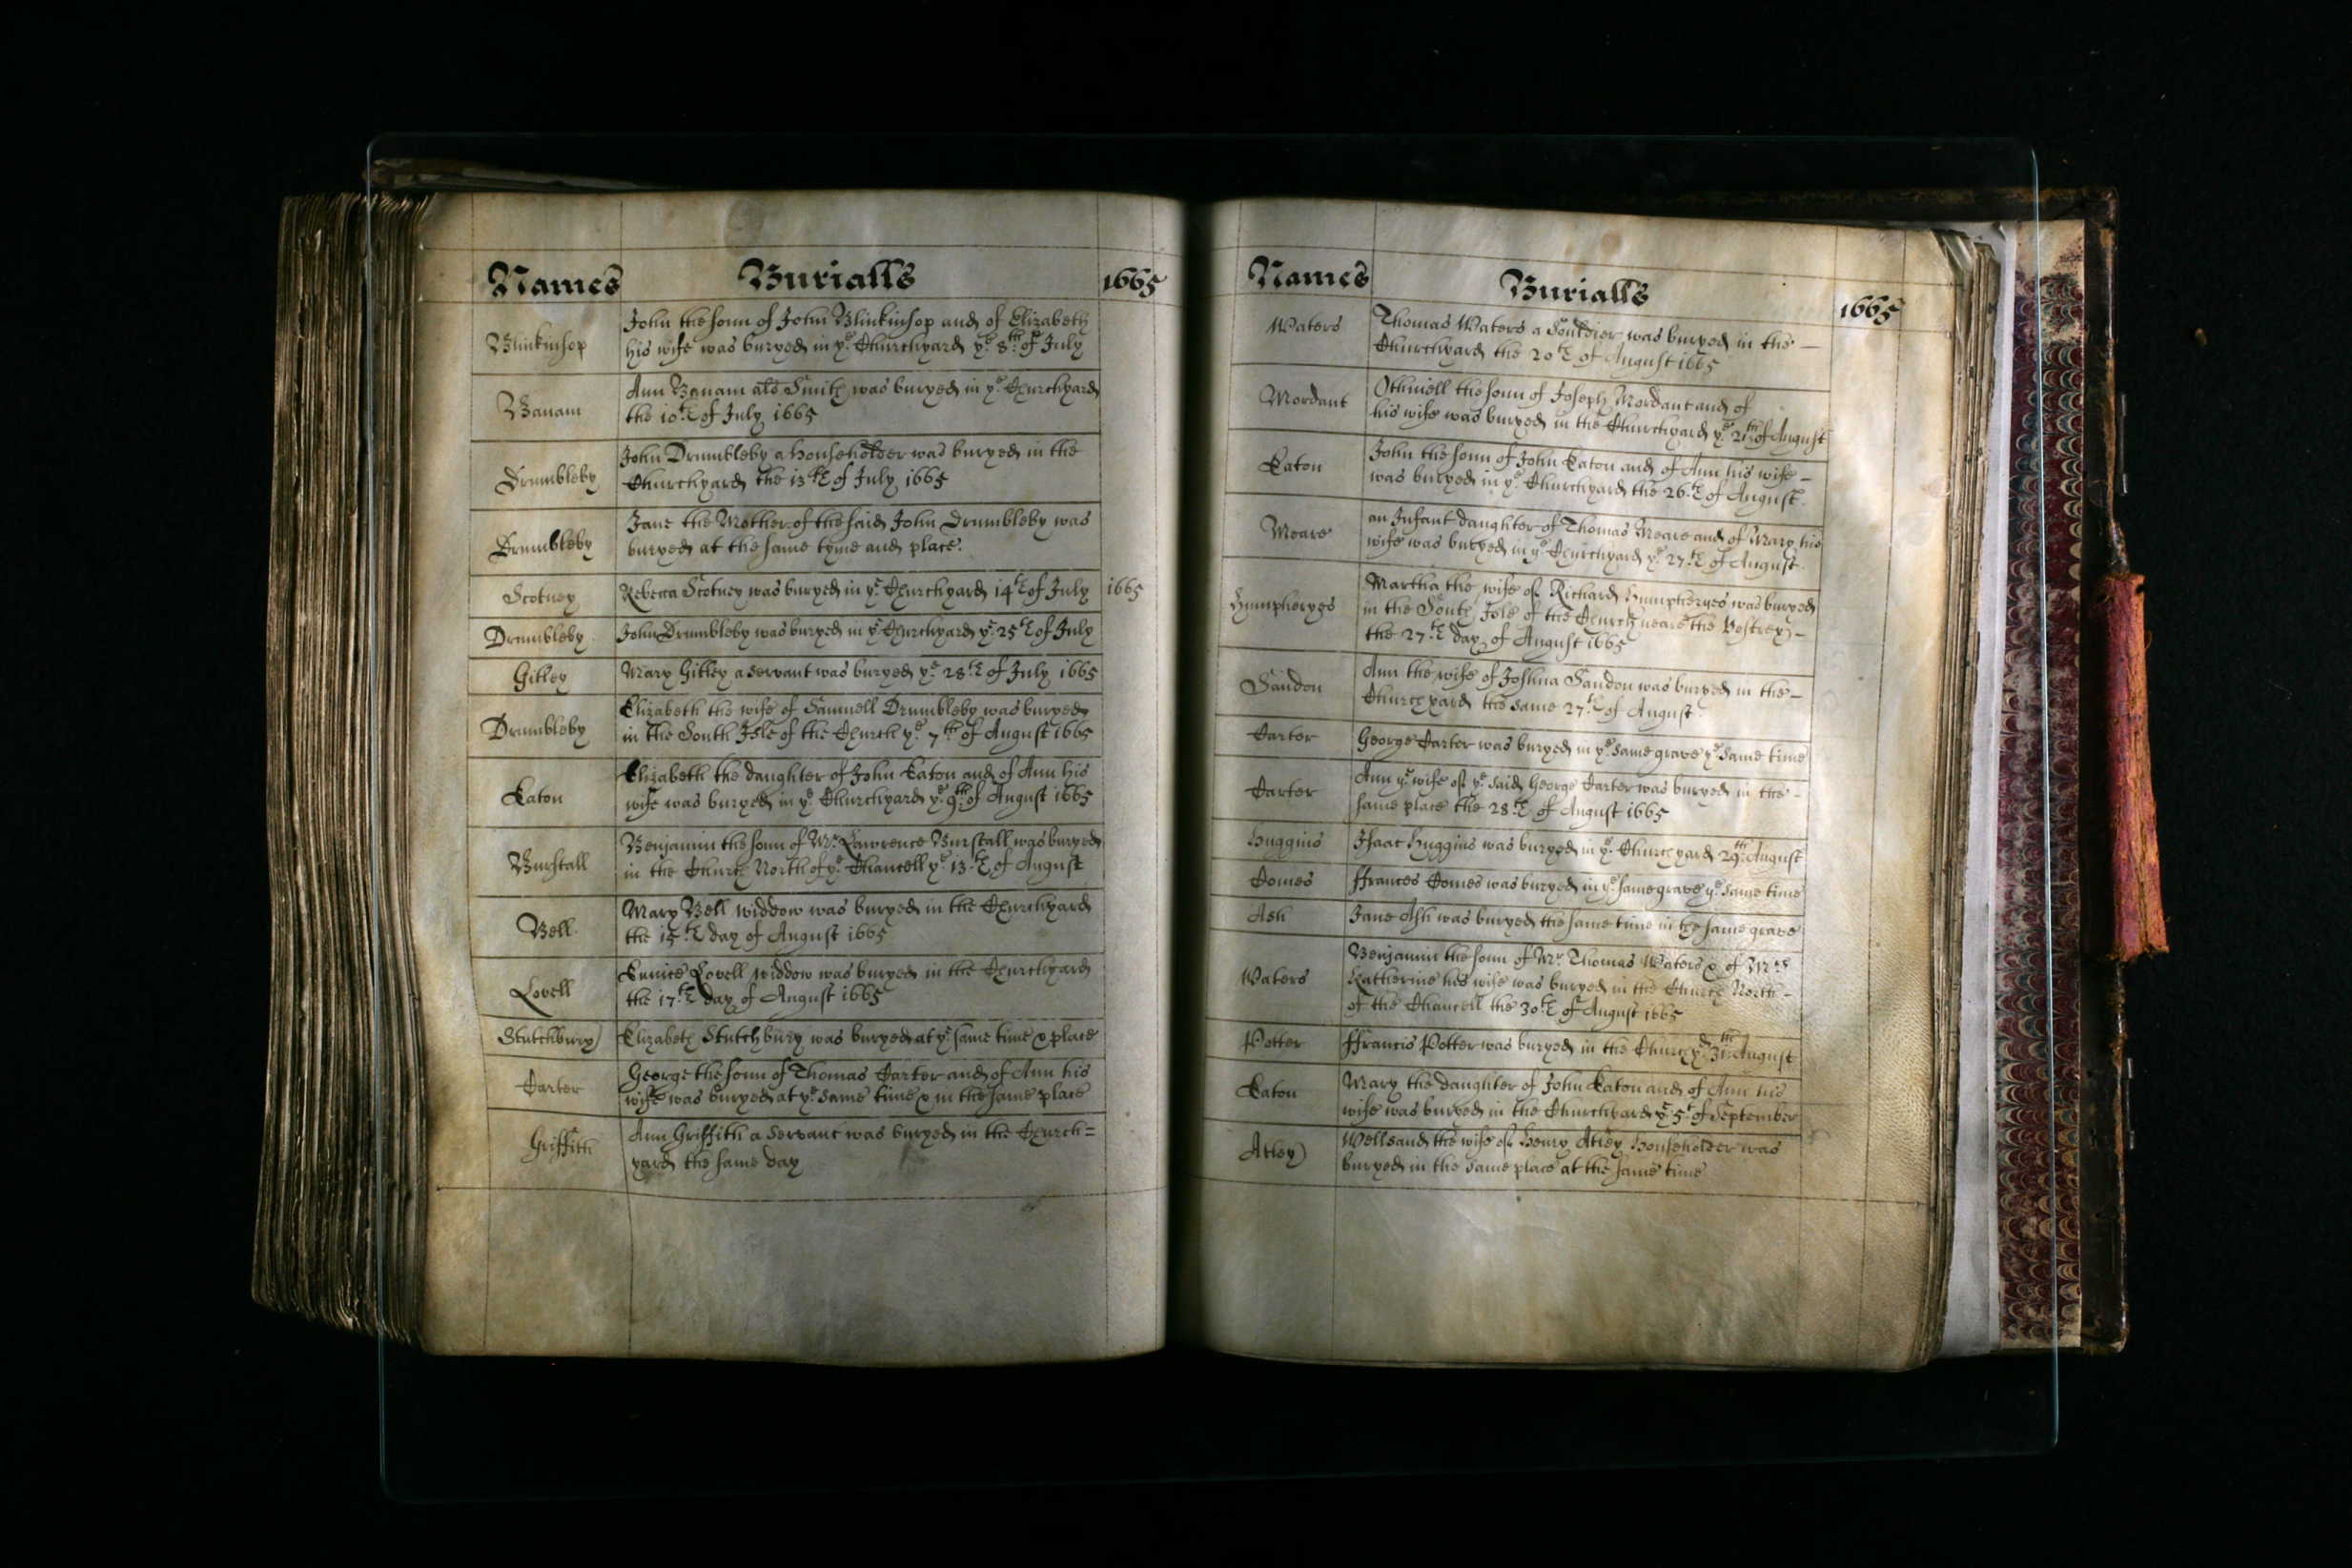 Names Burialls 1665
Blinkinsop
John the sonn of John Blinkinsop and of Elizabeth
his wife was buryed in ye Churchyard ye 8th of July
Banam
Ann Banam als Smith was buryed in ye Churchyard
the 10th of July 1665
Drumbleby
John Drumbleby a householder was buryed in the
Churchyard the 13th of July 1665
Drumbleby
Jane the Mother of the said John Drumbleby was
buryed at the same tyme and place.
Scotney
Rebecca Scotney was buryed in ye Churchyard 14th of July 1665
Drumbleby
John Drumbleby was buryed in ye Churchyard ye 25th of July
Gitley
Mary Gitley a servant was buryed ye 28th of July 1665
Drumbleby
Elizabeth the wife of Samuell Drumbleby was buryed
in the South Isle of the Church ye 7th of August 1665
Eaton
Elizabeth the daughter of John Eaton and of Ann his
wife was buryed in ye Churchyard ye 9th of August 1665
Burstall
Benjamin the sonn of Mr Lawrence Burstall was buryed
in the Church North of ye Chancell ye 13th of August
Bell
Mary Bell widdow was buryed in the Churchyard
the 15th day of August 1665
Lovell
Eunice Lovell widdow was buryed in the Churchyard
the 17th day of August 1665
Stutchbury
Elizabeth Stutchbury was buryed at ye same time & place
Carter
George the sonn of Thomas Carter and of Ann his
wife was buryed at ye same time & in the same place
Griffith
Ann Griffith a servant was buryed in the Church=
yard the same day
Names Burialls 1665
Waters
Thomas Waters a Souldier was buryed in the –
Churchyard the 20th of August 1665
Mordant
Othniell the sonn of Joseph Mordant and of
his wife was buryed in the Churchyard ye 21th of August
Eaton
John the sonn of John Eaton and of Ann his wife –
was buryed in ye Churchyard the 26th of August.
Meare
an Infant daughter of Thomas Meare and of Mary his
wife was buryed in ye Churchyard ye 27th of August.
Humpheryes
Martha the wife of Richard Humpheryes was buryed
in the South Isle of the Church neare the Vestrey –
the 27th day of August 1665
Sandon
Ann the wife of Joshua Sandon was buryed in the –
Churchyard the same 27th of August.
Carter
George Carter was buryed in ye same grave ye same time
Carter
Ann ye wife of ye said George Carter was buryed in the –
same place the 28th of August 1665
Huggins
Isaac Huggins was buryed in ye Churchyard 29th August
Comes
ffrances Comes was buryed in ye same grave ye same time
Ash
Jane Ash was buryed the same time in the same grave
Waters
Benjamin the sonn of Mr Thomas Waters & of Mrs
Katherine his wife was buryed in the Church North –
of the Chancell the 30th of August 1665
Potter
ffrancis Potter was buryed in the Churchyd 31th August
Eaton
Mary the daughter of John Eaton and of Ann his
wife was buryed in the Churchyard ye 5t of September
Atley
the wife of Henry Atley Householder was
buryed in the same place at the same time